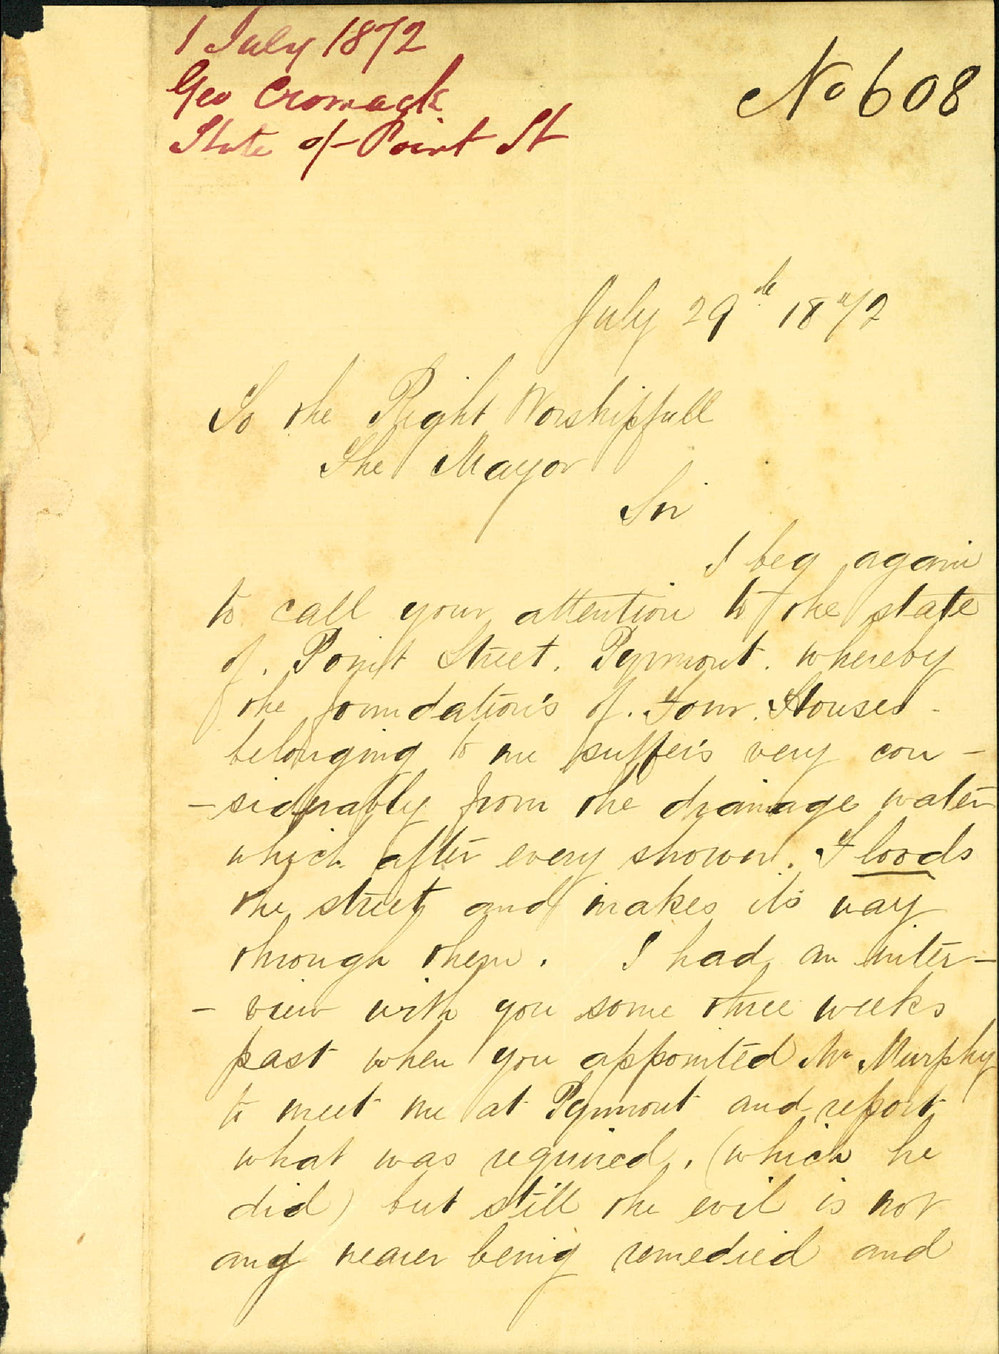 1 July 1872
Geo Cromack
State of Point St
No 608
July 29th 1872
To the Right Worshipfull
The Mayor
Sir
I beg again
to call your attention to the state
of. Point Street. Pyrmont. whereby
the foundation's of. Four. Houses -
belonging to me suffers very con -
- siderably from the drainage water
which after every shower. Floods
the street and makes its way
through them. I had an inter -
- view with you some three weeks
past when you appointed Mr Murphy
to meet me at Pyrmont and report
what was required. (which he
did) but still the evil is not
any nearer being remedied and